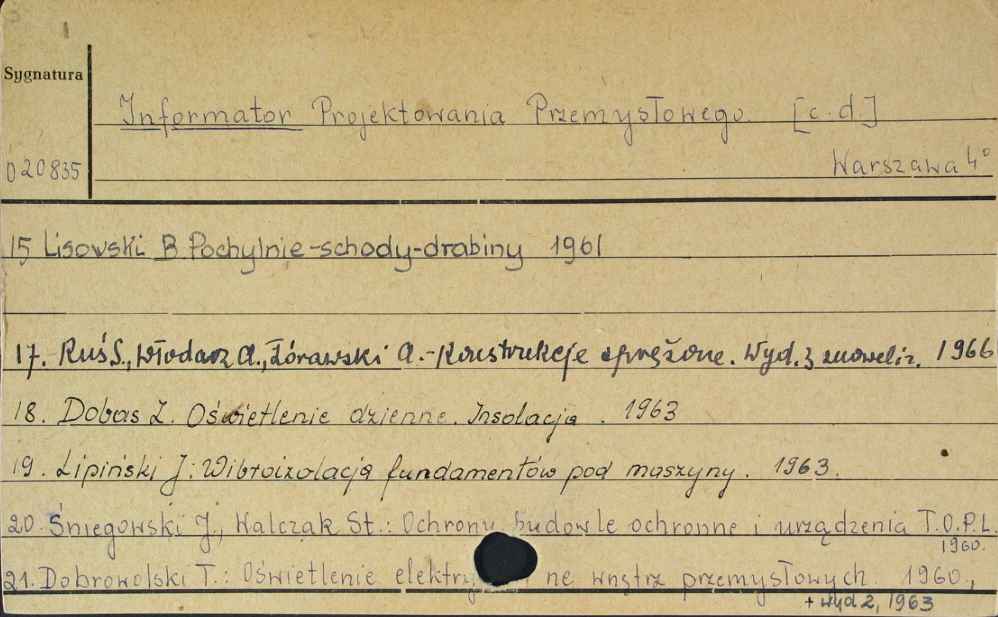 Sygnatura
Informator Projektowania Przemysłowego [c.d.]
020835
Warszawa 4°
15 Lisowski B Pochylnie-schody-drabiny 1961
17. Ruś S., Włodarz A., Żórawski A.-Konstrukcje sprężone. Wyd. 3 znoweliz. 1966
18. Dobas Z. Oświetlenie dzienne. Insolacja . 1963
19. Lipiński J: Wibroizolacja fundamentów pod maszyny. 1963.
20. Śniegowski J., Walczak St.: Ochrony budowle ochronne i urządzenia T.O.P.L
1960.
21. Dobrowolski T.: Oświetlenie elektry ne wnętrz przemysłowych. 1960.,
+ wyd 2, 1963